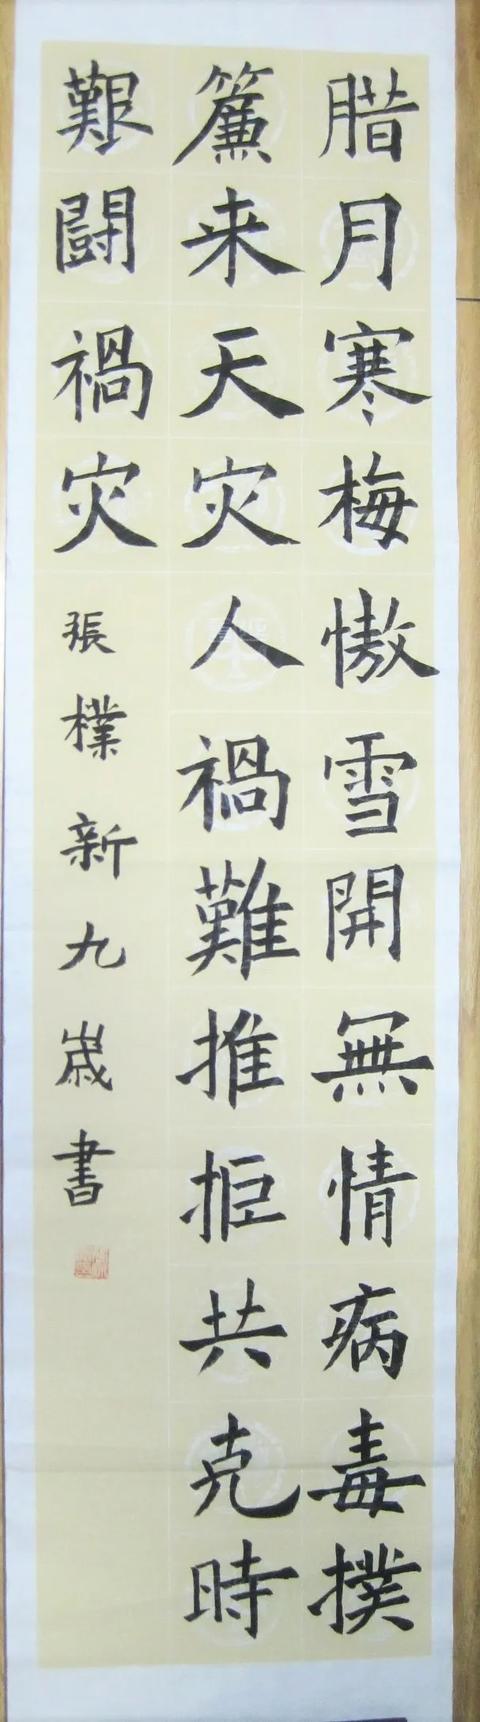 腊月寒梅慠雪開無情病毒撲
簾来天灾人禍難推拒共克時
艱闘禍灾
張檏新九歲書